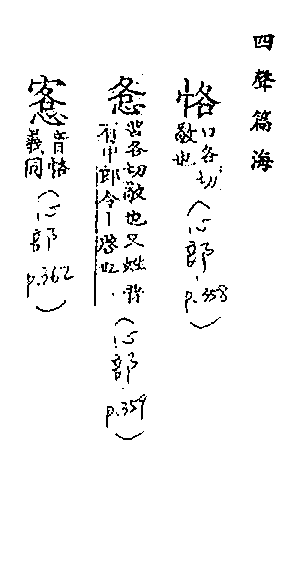 四聲篇海
恪 口各切
敬也
(心部.
p.358)
苦各切敬也又姓晉
有中郎令
(心部.
p.359)
愙 音恪
義同
(心部
p.362)